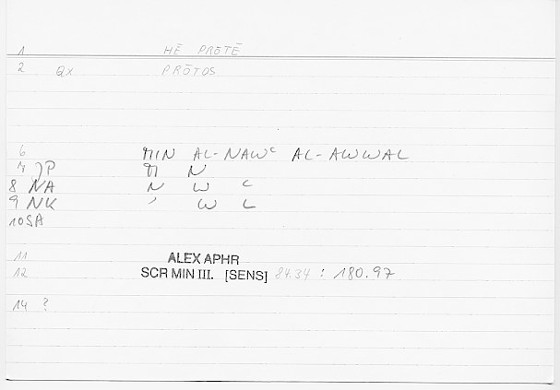 1 HĒ PRŌTĒ
2 Qx PRŌTOS
6 MIN AL-NAWʿ AL-AWWAL
7 JP M N
8 NA N W ʿ
9 NK ʾ W L
10 SA
11 ALEX APHR
12 SCR MIN III. [SENS] 84.34 : 180.97
14 ?